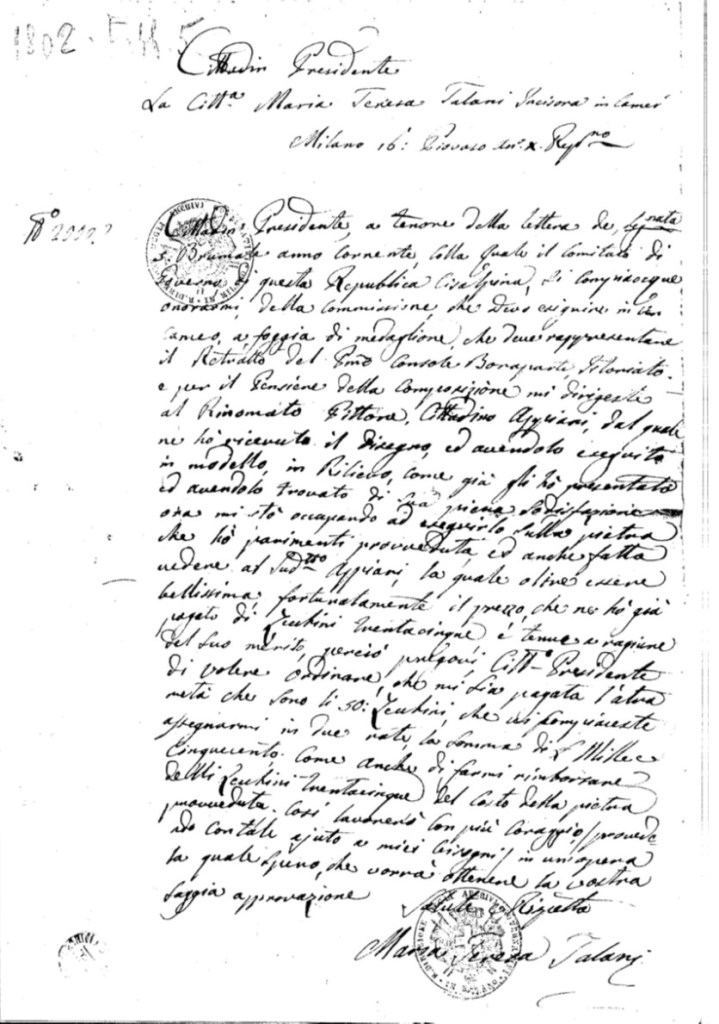 1802.
Cittadin Presidente
La Citt.a Maria Teresa Talani Incisora in Camei
Milano 16: Piovoso an. X. Rep.no
N.o
Cittadino Presidente, a tenore della lettera de,
5. Brumale anno corrente, colla quale il Comitato di
Governo di questa Republica Cisalpina, si compiacque
onorarmi, della Commissione, che devo esiguire in un
Cameo, a foggia di medaglione, che deve rappresentare
il Retratto del Pmo Console Bonaparte, Istoriato
e per il Pensiene della Composizione mi dirigeste
al Rinomato Pittore, Cittadino Appiani, dal quale
ne hò ricevuto il disegno, ed avendolo eseguito
in modello, in Rilievo, come già gli hò presentato
ed avendolo trovato di sua piena sodisfazione
ora mi stò occupando ad eseguirlo sulla pietra
che hò parimenti provveduta, ed anche fatta
vedere al Sud.tto Appiani, la quale oltre essere
bellissima fortunatamente il prezzo, che ne hò già
pagato di Zecchini trentacinque è tenue a ragione
del suo mérito, perciò pregovi, Citt.o Presidente
di volere ordinare, che mi sia pagata l'altra
metà che sono li 50: Zecchini, che vi compiaceste
assegnarmi in due rate, la somma di £ Mille e
Cinquecento. Come anche di farmi rimborsare
delli Zecchini trentacinque del Costo della pietra
provveduta. Così lavorerò con più Coraggio, / provede
ndo con tále ajuto a miei bisogni / in un'opera
la quale spero, che vorrà ottenere la vostra
saggia approvazione
Salute e Rispetto
Maria Teresa Talani